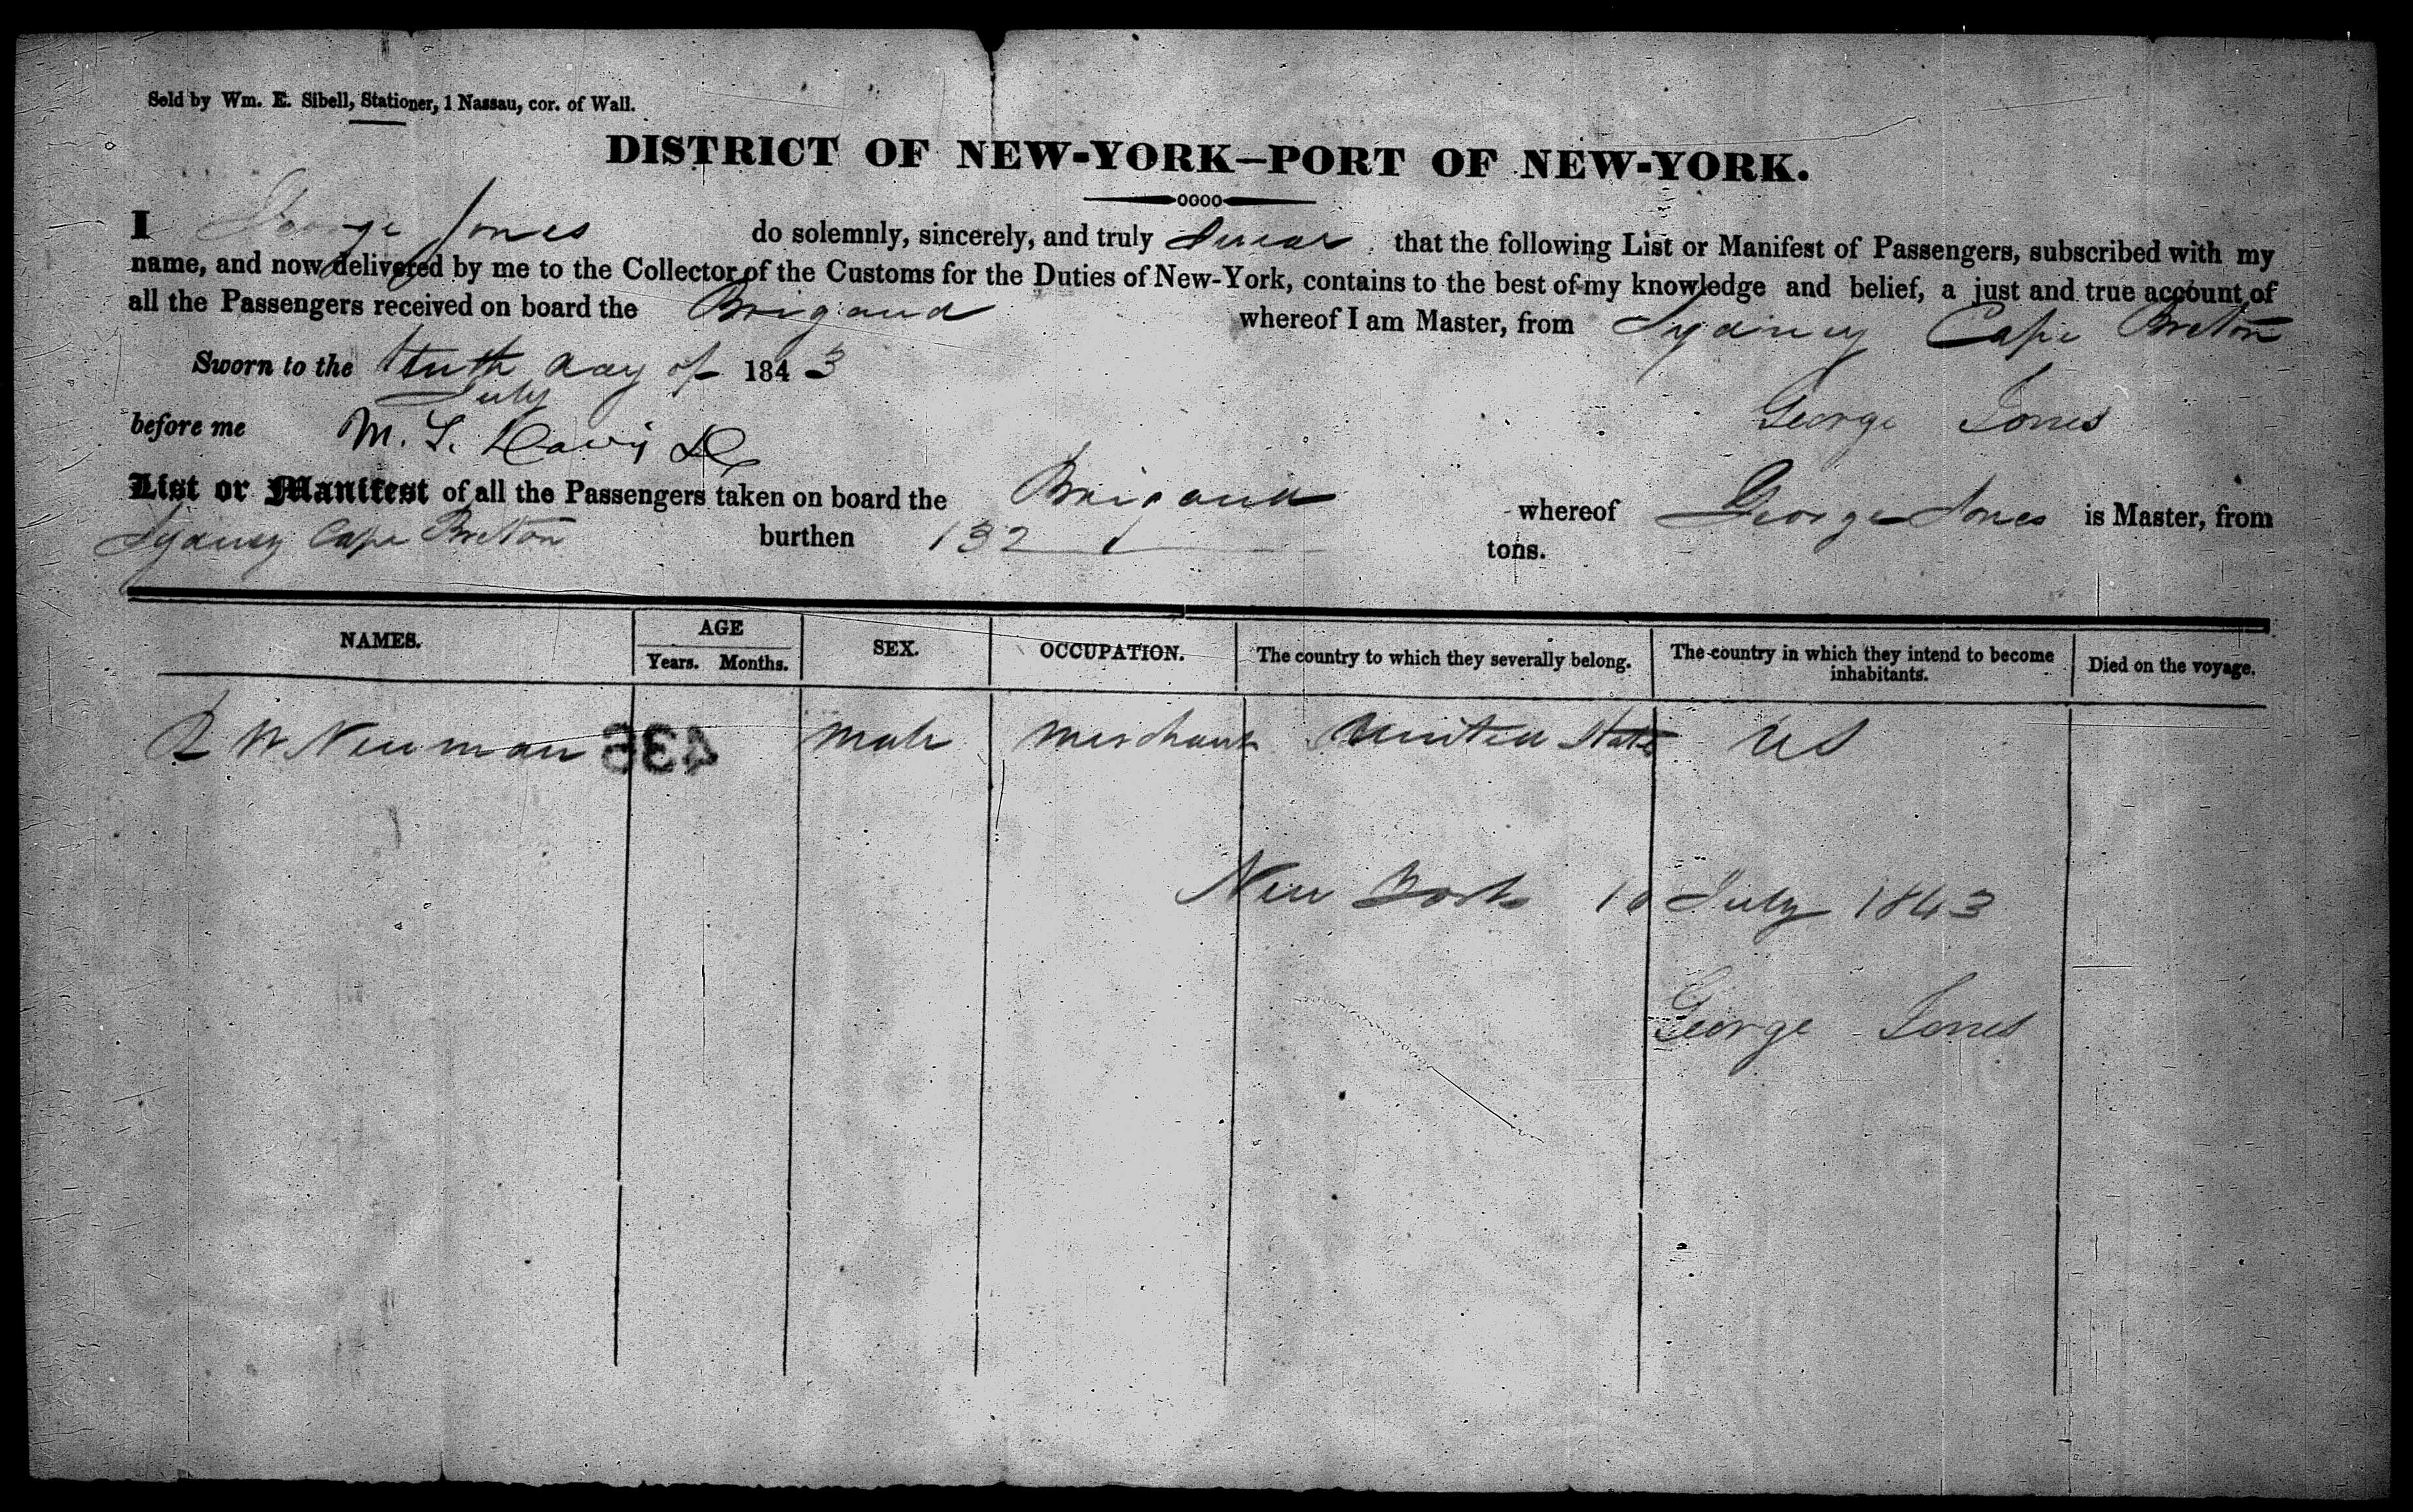 Sold by Wm. E. Sibell, Stationer, 1 Nassau, cor. of Wall.
DISTRICT OF NEW-YORK—PORT OF NEW-YORK.
I George Jones do solemnly, sincerely, and truly Swear that the following List or Manifest of Passengers, subscribed with my
name, and now delivered by me to the Collector of the Customs for the Duties of New-York, contains to the best of my knowledge and belief, a just and true account of
all the Passengers received on board the Brigand whereof I am Master, from Sydney Cape Breton
Sworn to the tenth day of 1843
July
before me M. L. Davis
George Jones
List or Manifest of all the Passengers taken on board the Brigand whereof George Jones is Master, from
Sydney Cape Breton burthen 132 tons.
NAMES. AGE SEX. OCCUPATION. The country to which they severally belong. The country in which they intend to become inhabitants. Died on the voyage.
Years. Months.
W Newman 436 male merchant United States US
New York 10 July 1843
George Jones